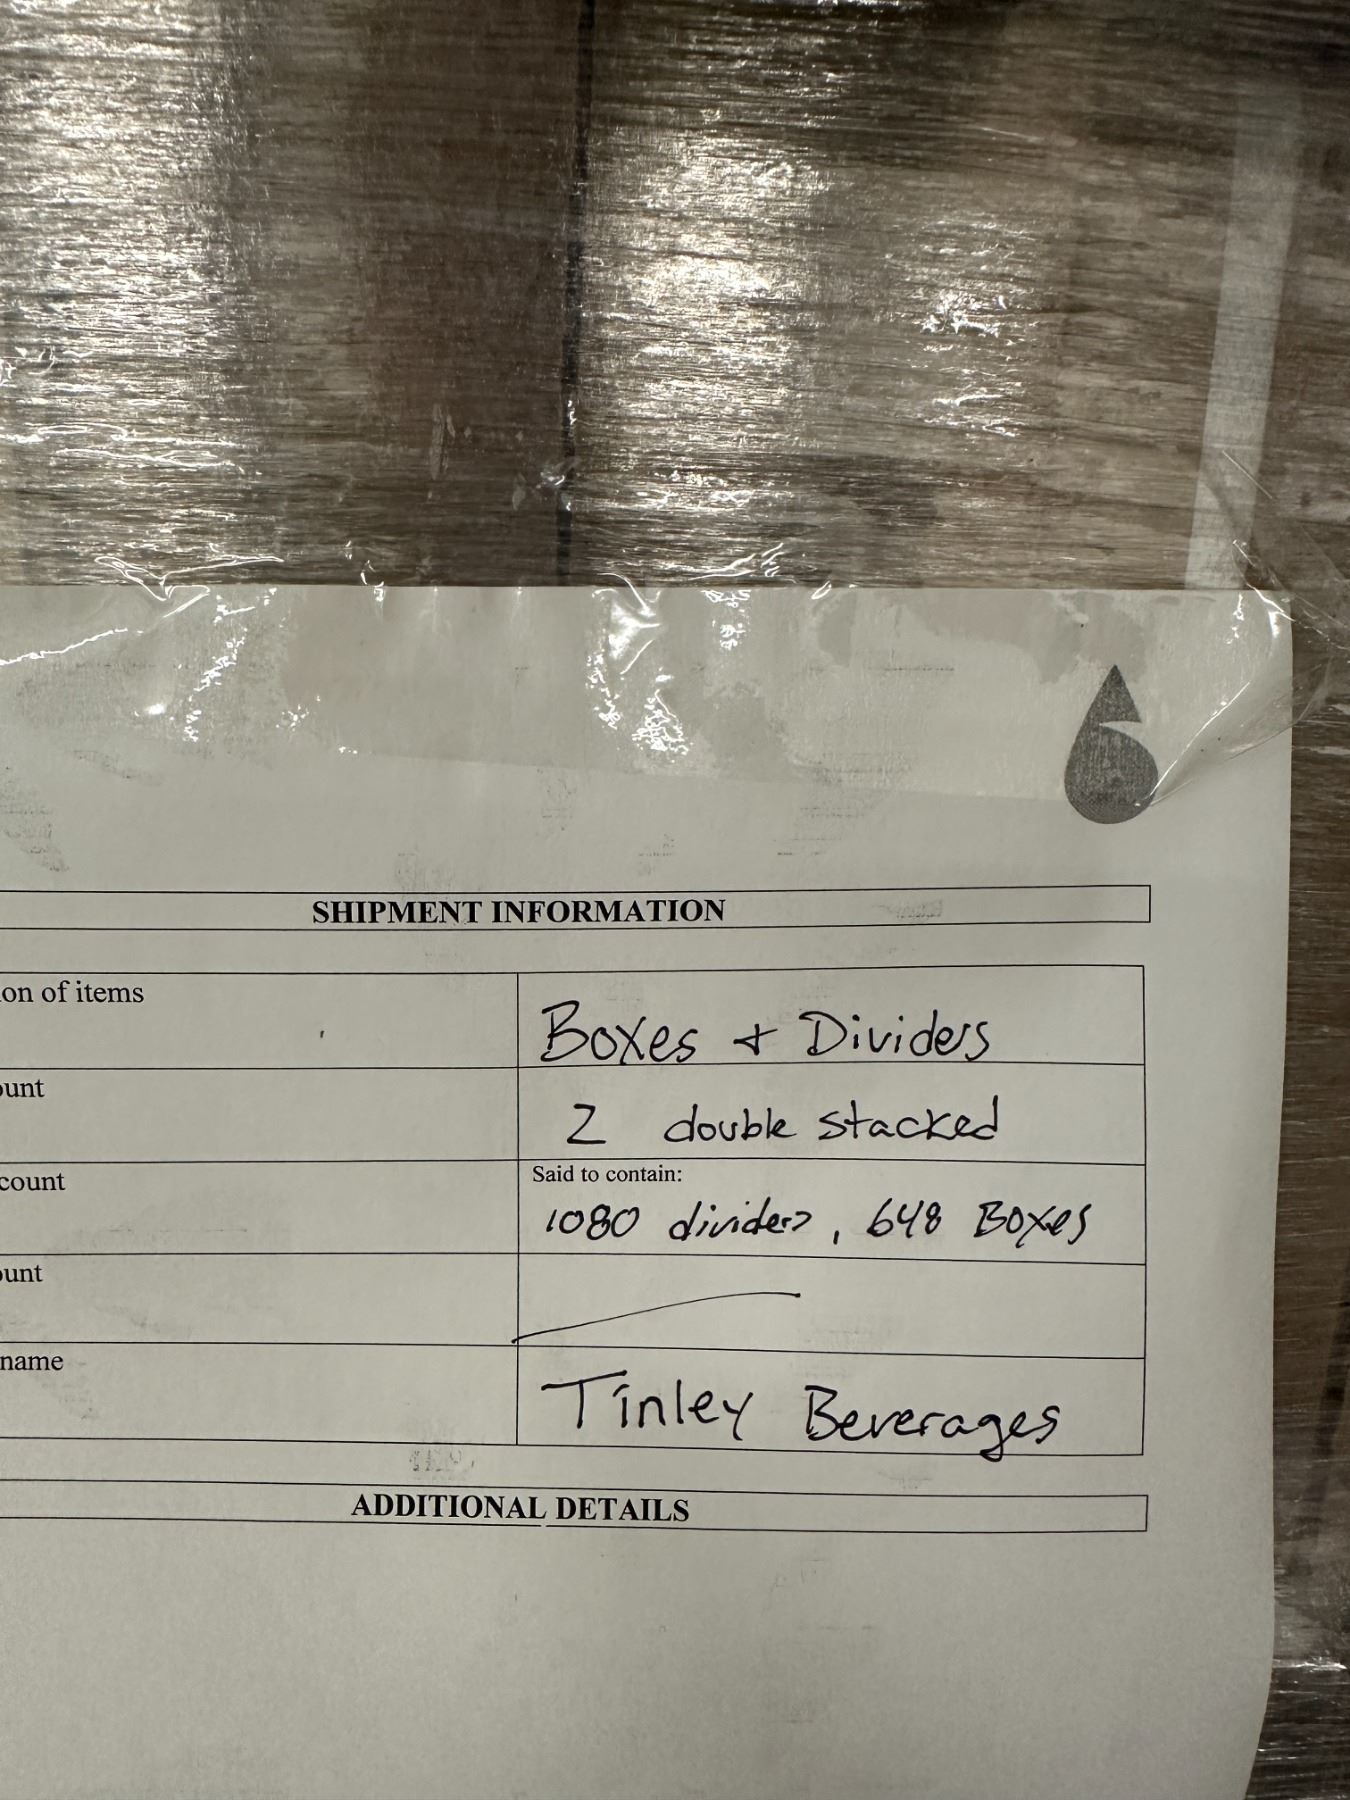 SHIPMENT INFORMATION
on of items
Boxes + Dividers
ount
2 double stacked
count
Said to contain:
1080 dividers, 648 Boxes
ount
name
Tinley Beverages
ADDITIONAL DETAILS